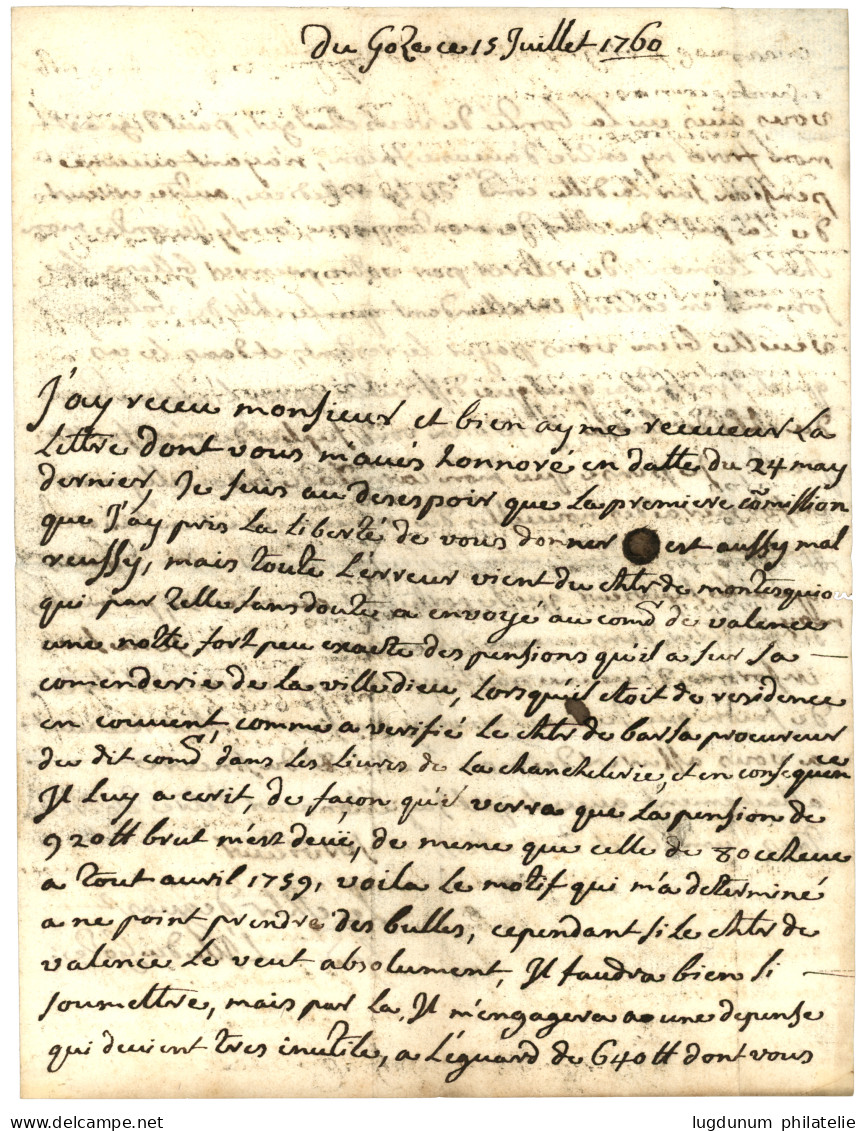 Du Goze ce 15 Juillet 1760
J'ay receu monsieur et bien aymé receveur La
Lettre dont vous m'avés honnoré en datte du 24 may
dernier, Je suis au desespoir que La premiere comission
que J'ay pris La liberté de vous donner est aussy mal
reussy, mais toute L'erreur vient du chlr de montesquiou
qui par Zelle sans doute a envoyé au comd de valence
une notte fort peu exacte des pensions qu'il a sur sa
comenderie de La ville dieu, Lorsqu'il etoit de residence
en couvent, comme a verifié Le chlr de barsa procureur
du dit comd dans Les Livres de La chanchelerie, et en consequence
Il Luy a ecrit, de façon qu'il verra que La pension de
920 ## brut m'est deüe, de meme que celle de 80 echeue
a tout avril 1759, voila Le motif qui m'a determiné
a ne point prendre des bulles, cependant si Le chlr de
valence Le veut absolument, Il faudra bien si
soumettre, mais par La, Il m'engagera a une depense
qui devient tres inutile, a L'eguard de 640 ## dont vous
lugdunum philatelie